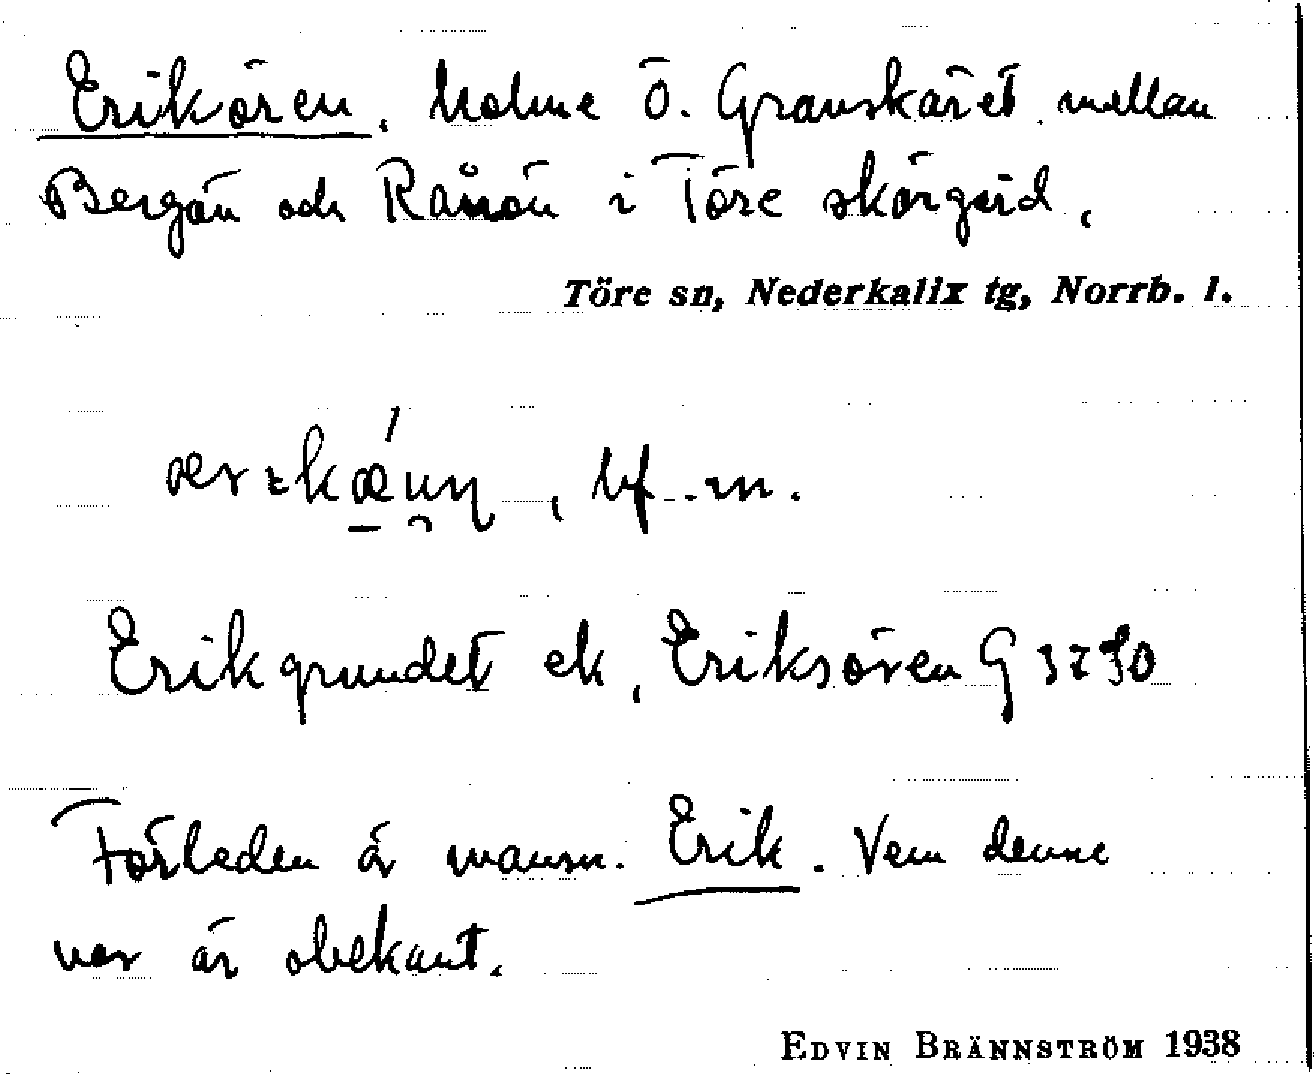 Eriksören, holme Ö. Granskäret mellan
Bergön och Rånön i Töre skärgård.
Töre sn, Nederkalix tg, Norrb. l.
bf. m.
Erikgrundet ek, Eriksören G
Förleden är mansn. Erik. Vem denne
var är obekant.
EDVIN BRÄNNSTRÖM 1938